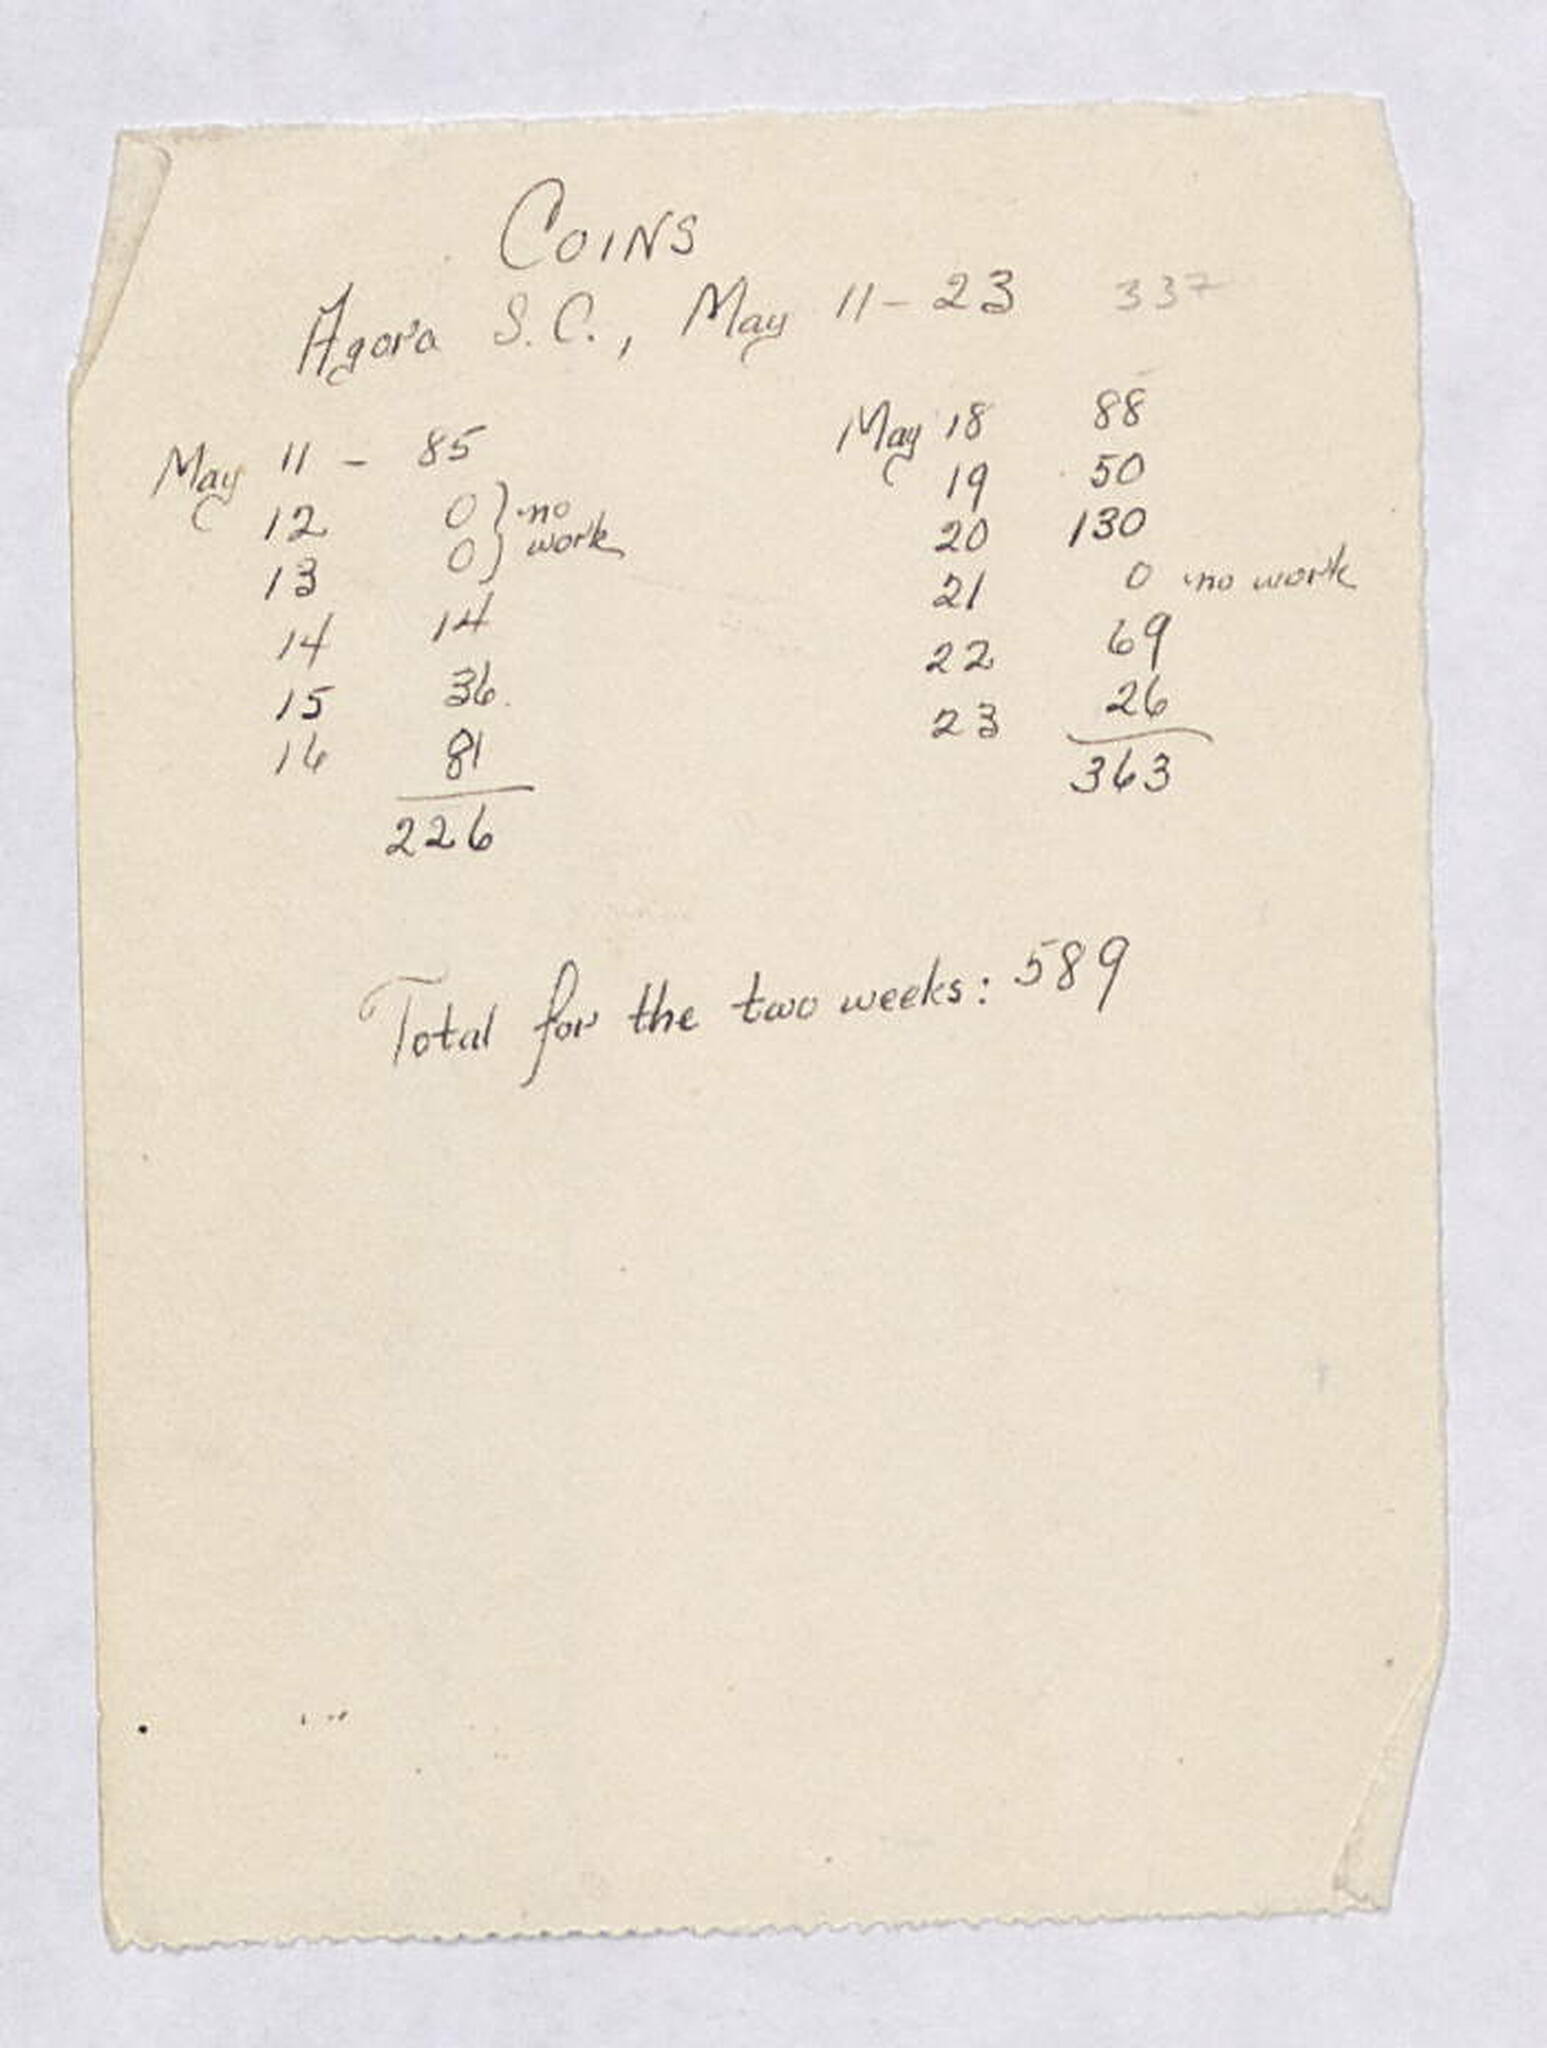 COINS
Agora S.C., May 11-23 337
May 11 - 85
12 0 } no
13 0 } work
14 14
15 36
16 81
226
May 18 88
19 50
20 130
21 0 no work
22 69
23 26
363
Total for the two weeks: 589